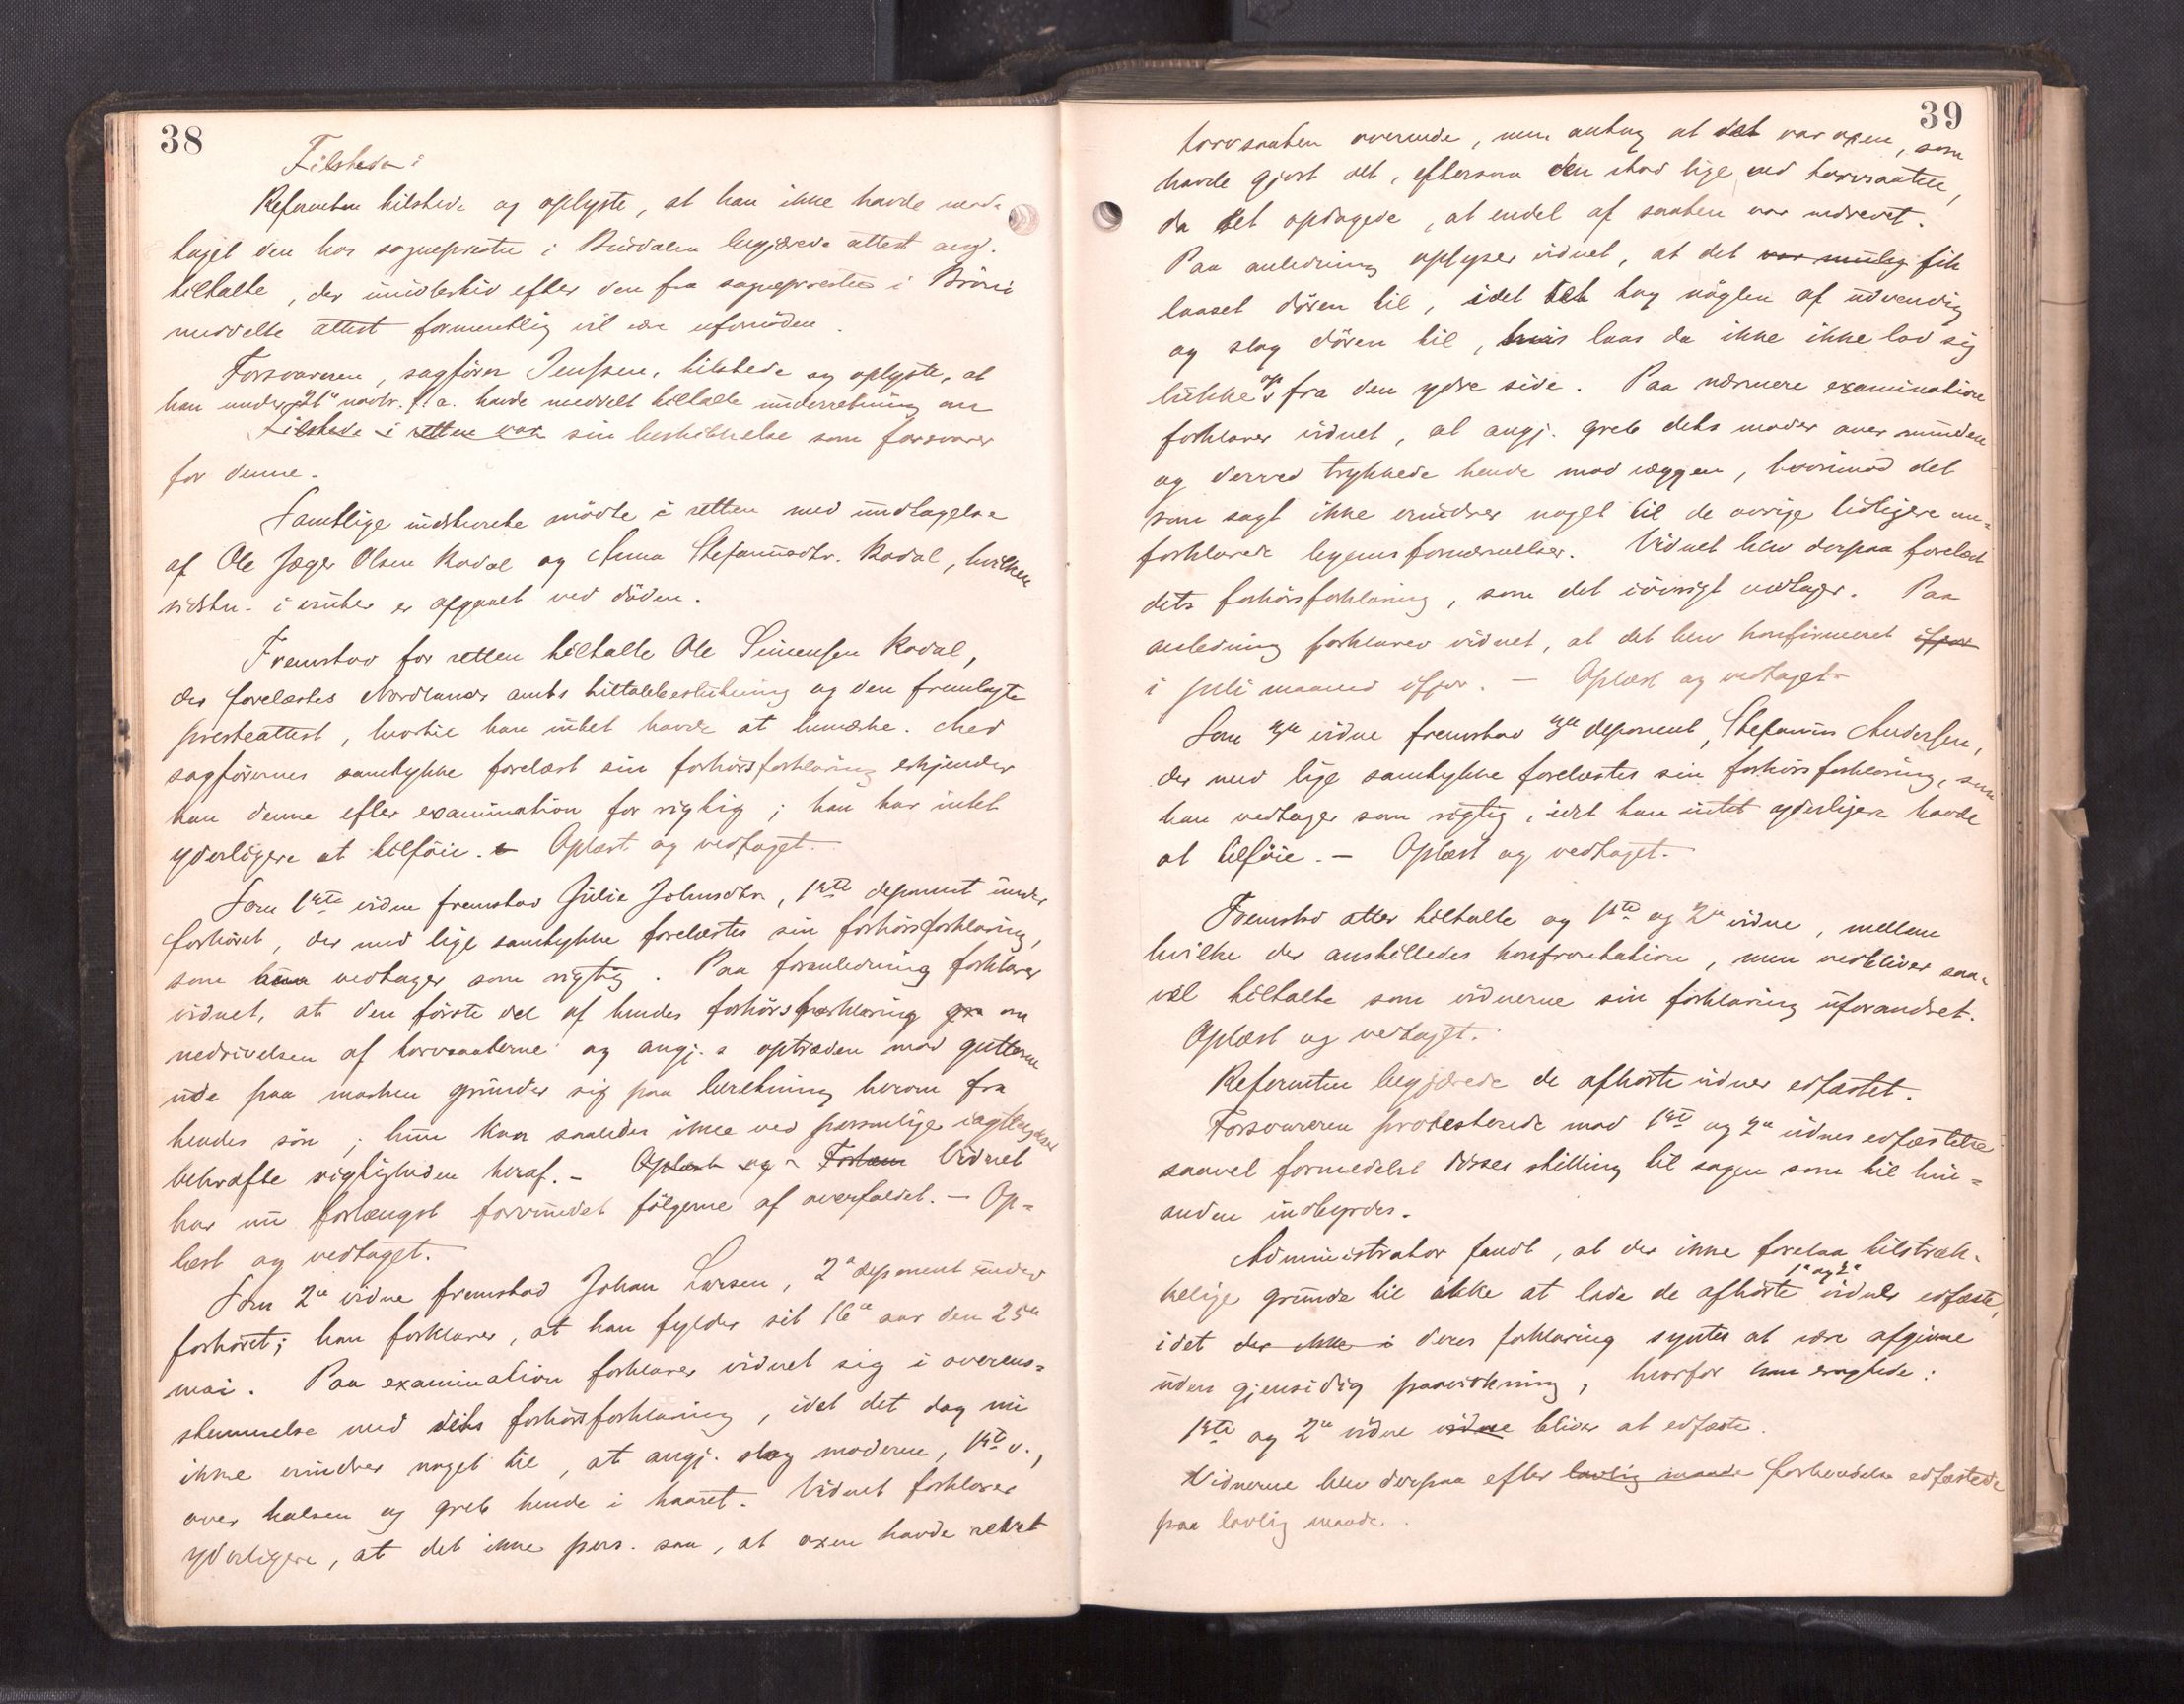 38
Tilstede i
Referenten tilstede og oplyste, at han ikke havde mod-
taget den hos sognepresten i Bindalen begjærede attest ang.
tiltalte, der imidlertid efter den fra sognepresten i Brönö
meddelte attest formentlig vil være ufornöden.
Forsvareren, sagförer Jenssen, tilstede og oplyste, at
han under 21de novbr. f. a. havde meddelt tiltalte underretning om
Tilstede i retten var sin beskikkelse som forsvarer
for denne.
Samtlige indstevnte mödte i retten med undtagelse
af Ole Jæger Olsen Kodal og Anna Stefanusdtr. Kodal, hvilken
sidstn. i vinter er afgaaet ved döden.
Fremstod for retten tiltalte Ole Simensen Kodal,
der forelæstes Nordlands amts tiltalebeslutning og den fremlagte
presteattest, hvortil han intet havde at bemærke. Med
sagförernes samtykke forelæst sin forhörsforklaring erkjender
han denne efter examination for rigtig; han har intet
yderligere at tilföie. – Oplæst og vedtaget.
Som 1ste vidne fremstod Julie Johnsdtr, 1ste deponent under
forhöret, der med lige samtykke forelæstes sin forhörsforklaring,
som hun vedtager som rigtig. Paa foranledning forklarer
vidnet, at den förste del af hendes forhörsforklaring om
nedrivelsen af torvsaaterne og angj.s optræden mod gutterne
ude paa marken grunder sig paa beretning herom fra
hendes sön; hun kan saaledes ikke ved personlige iagttagelser
bekræfte rigtigheden heraf. – Oplæst og Vidnet
har nu forlængst forvundet fölgerne af overfaldet. – Op-
læst og vedtaget.
Som 2det vidne fremstod Johan Larsen, 2det deponent under
forhöret; han forklarer, at han fylder sit 16de aar den 25de
mai. Paa examination forklarer vidnet sig i overens-
stemmelse med dets forhörsforklaring, idet det dog nu
ikke erindrer noget til, at angj. slog moderen, 1ste v.,
over halsen og greb hende i haaret. Vidnet forklarer
yderligere, at det ikke pers. saa, at oxen havde revet
39
torvsaaten overende, men antog at det var oxen, som
havde gjort det, eftersom den stod lige ved torvsaaten,
da det opdagede, at endel af saaten var nedrevet.
Paa anledning oplyser vidnet, at det var mulig fik
laaset dören til, idet det tog nöglen af udvendig
og slog dören til, hvis laas da ikke ikke lod sig
lukke op fra den ydre side. Paa nærmere examination
forklarer vidnet, at angj. greb dets moder over munden
og derved trykkede hende mod væggen, hvorimod det
som sagt ikke erindrer noget til de övrige tidligere om-
forklarede legemsfornærmelser. Vidnet blev derpaa forelæst
dets forhörsforklaring, som det iövrigt vedtager. Paa
anledning forklarer vidnet, at det blev konfirmeret ifjor
i juli maaned ifjor. – Oplæst og vedtaget
Som 3die vidne fremstod 3die deponent, Stefanus Andersen,
der med lige samtykke forelæstes sin forhörsforklaring, som
han vedtager som rigtig, idet han intet yderligere havde
at tilföie. – Oplæst og vedtaget.
Fremstod atter tiltalte og 1ste og 2det vidne, mellem
hvilke der anstilledes konfrontation, men vedbliver saa-
vel tiltalte som vidnerne sin forklaring uforandret.
Oplæst og vedtaget.
Referenten begjærede de afhörte vidner edfæstet.
Forsvareren protesterede mod 1ste og 2det vidnes edfæstelse
saavel formedelst disses stilling til sagen som til hin-
anden indbyrdes.
Administrator fandt, at der ikke forelaa tilstræk-
kelige grunde til ikke at lade de afhörte 1ste og 2det vidner edfæste,
idet der ikke i deres forklaring syntes at være afgivne
uden gjensidig paavirkning, hvorfor han eragtede:
1ste og 2det vidne vidne bliver at edfæste.
Vidnerne blev derpaa efter lovlig maade forhendelse edfæstede
paa lovlig maade.